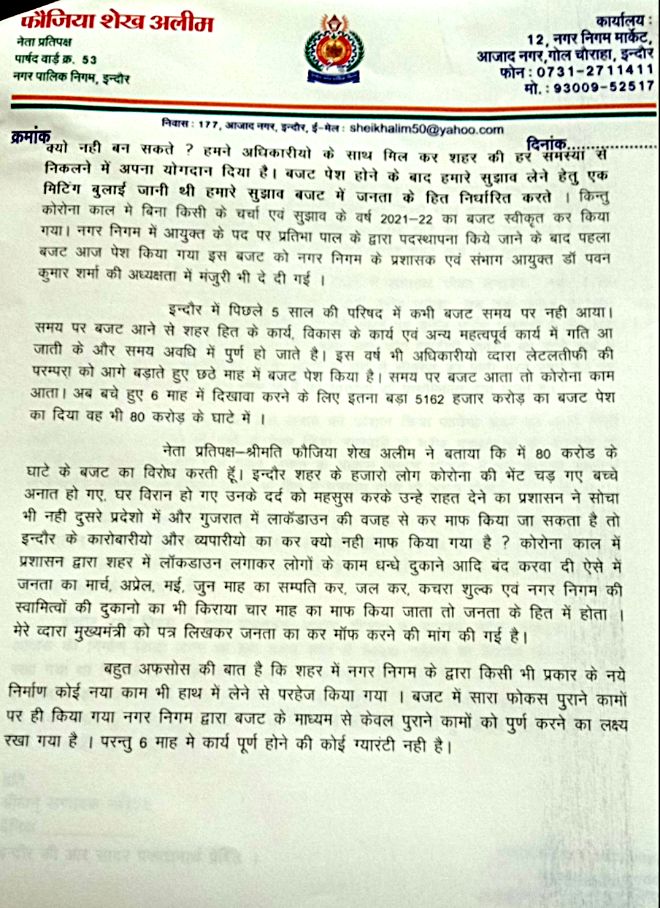 फौजिया शेख अलीम
नेता प्रतिपक्ष
पार्षद वार्ड क्र. 53
नगर पालिक निगम, इन्दौर
कार्यालय :
12, नगर निगम मार्केट,
आजाद नगर,गोल चौराहा, इन्दौर
फोन : 0731-2711411
मो. : 93009-52517
निवास : 177, आजाद नगर, इन्दौर, ई-मेल : sheikhalim50@yahoo.com
क्रमांक
दिनांक.....................
क्यो नही बन सकते ? हमने अधिकारीयो के साथ मिल कर शहर की हर समस्या से
निकलने में अपना योगदान दिया है। बजट पेश होने के बाद हमारे सुझाव लेने हेतु एक
मिटिंग बुलाई जानी थी हमारे सुझाव बजट में जनता के हित निर्धारित करते । किन्तु
कोरोना काल मे बिना किसी के चर्चा एवं सुझाव के वर्ष 2021-22 का बजट स्वीकृत कर किया
गया। नगर निगम में आयुक्त के पद पर प्रतिभा पाल के द्वारा पदस्थापना किये जाने के बाद पहला
बजट आज पेश किया गया इस बजट को नगर निगम के प्रशासक एवं संभाग आयुक्त डॉ पवन
कुमार शर्मा की अध्यक्षता में मंजुरी भी दे दी गई ।
इन्दौर में पिछले 5 साल की परिषद में कभी बजट समय पर नही आया।
समय पर बजट आने से शहर हित के कार्य, विकास के कार्य एवं अन्य महत्वपूर्व कार्य में गति आ
जाती के और समय अवधि में पुर्ण हो जाते है। इस वर्ष भी अधिकारीयो व्दारा लेटलतीफी की
परम्परा को आगे बड़ाते हुए छठे माह में बजट पेश किया है। समय पर बजट आता तो कोरोना काम
आता। अब बचे हुए 6 माह में दिखावा करने के लिए इतना बड़ा 5162 हजार करोड़ का बजट पेश
का दिया वह भी 80 करोड़ के घाटे में ।
नेता प्रतिपक्ष–श्रीमति फौजिया शेख अलीम ने बताया कि में 80 करोड के
घाटे के बजट का विरोध करती हूँ। इन्दौर शहर के हजारो लोग कोरोना की भेंट चड़ गए बच्चे
अनात हो गए, घर विरान हो गए उनके दर्द को महसुस करके उन्हे राहत देने का प्रशासन ने सोचा
भी नही दुसरे प्रदेशो में और गुजरात में लाकॅडाउन की वजह से कर माफ किया जा सकता है तो
इन्दौर के कारोबारीयो और व्यपारीयो का कर क्यो नही माफ किया गया है ? कोरोना काल में
प्रशासन द्वारा शहर में लॉकडाउन लगाकर लोगों के काम धन्धे दुकाने आदि बंद करवा दी ऐसे में
जनता का मार्च, अप्रेल, मई, जुन माह का सम्पति कर, जल कर, कचरा शुल्क एवं नगर निगम की
स्वामित्वों की दुकानो का भी किराया चार माह का माफ किया जाता तो जनता के हित में होता ।
मेरे व्दारा मुख्यमंत्री को पत्र लिखकर जनता का कर मॉफ करने की मांग की गई है।
बहुत अफसोस की बात है कि शहर में नगर निगम के द्वारा किसी भी प्रकार के नये
निर्माण कोई नया काम भी हाथ में लेने से परहेज किया गया । बजट में सारा फोकस पुराने कामों
पर ही किया गया नगर निगम द्वारा बजट के माध्यम से केवल पुराने कामों को पुर्ण करने का लक्ष्य
रखा गया है । परन्तु 6 माह मे कार्य पूर्ण होने की कोई ग्यारंटी नही है।